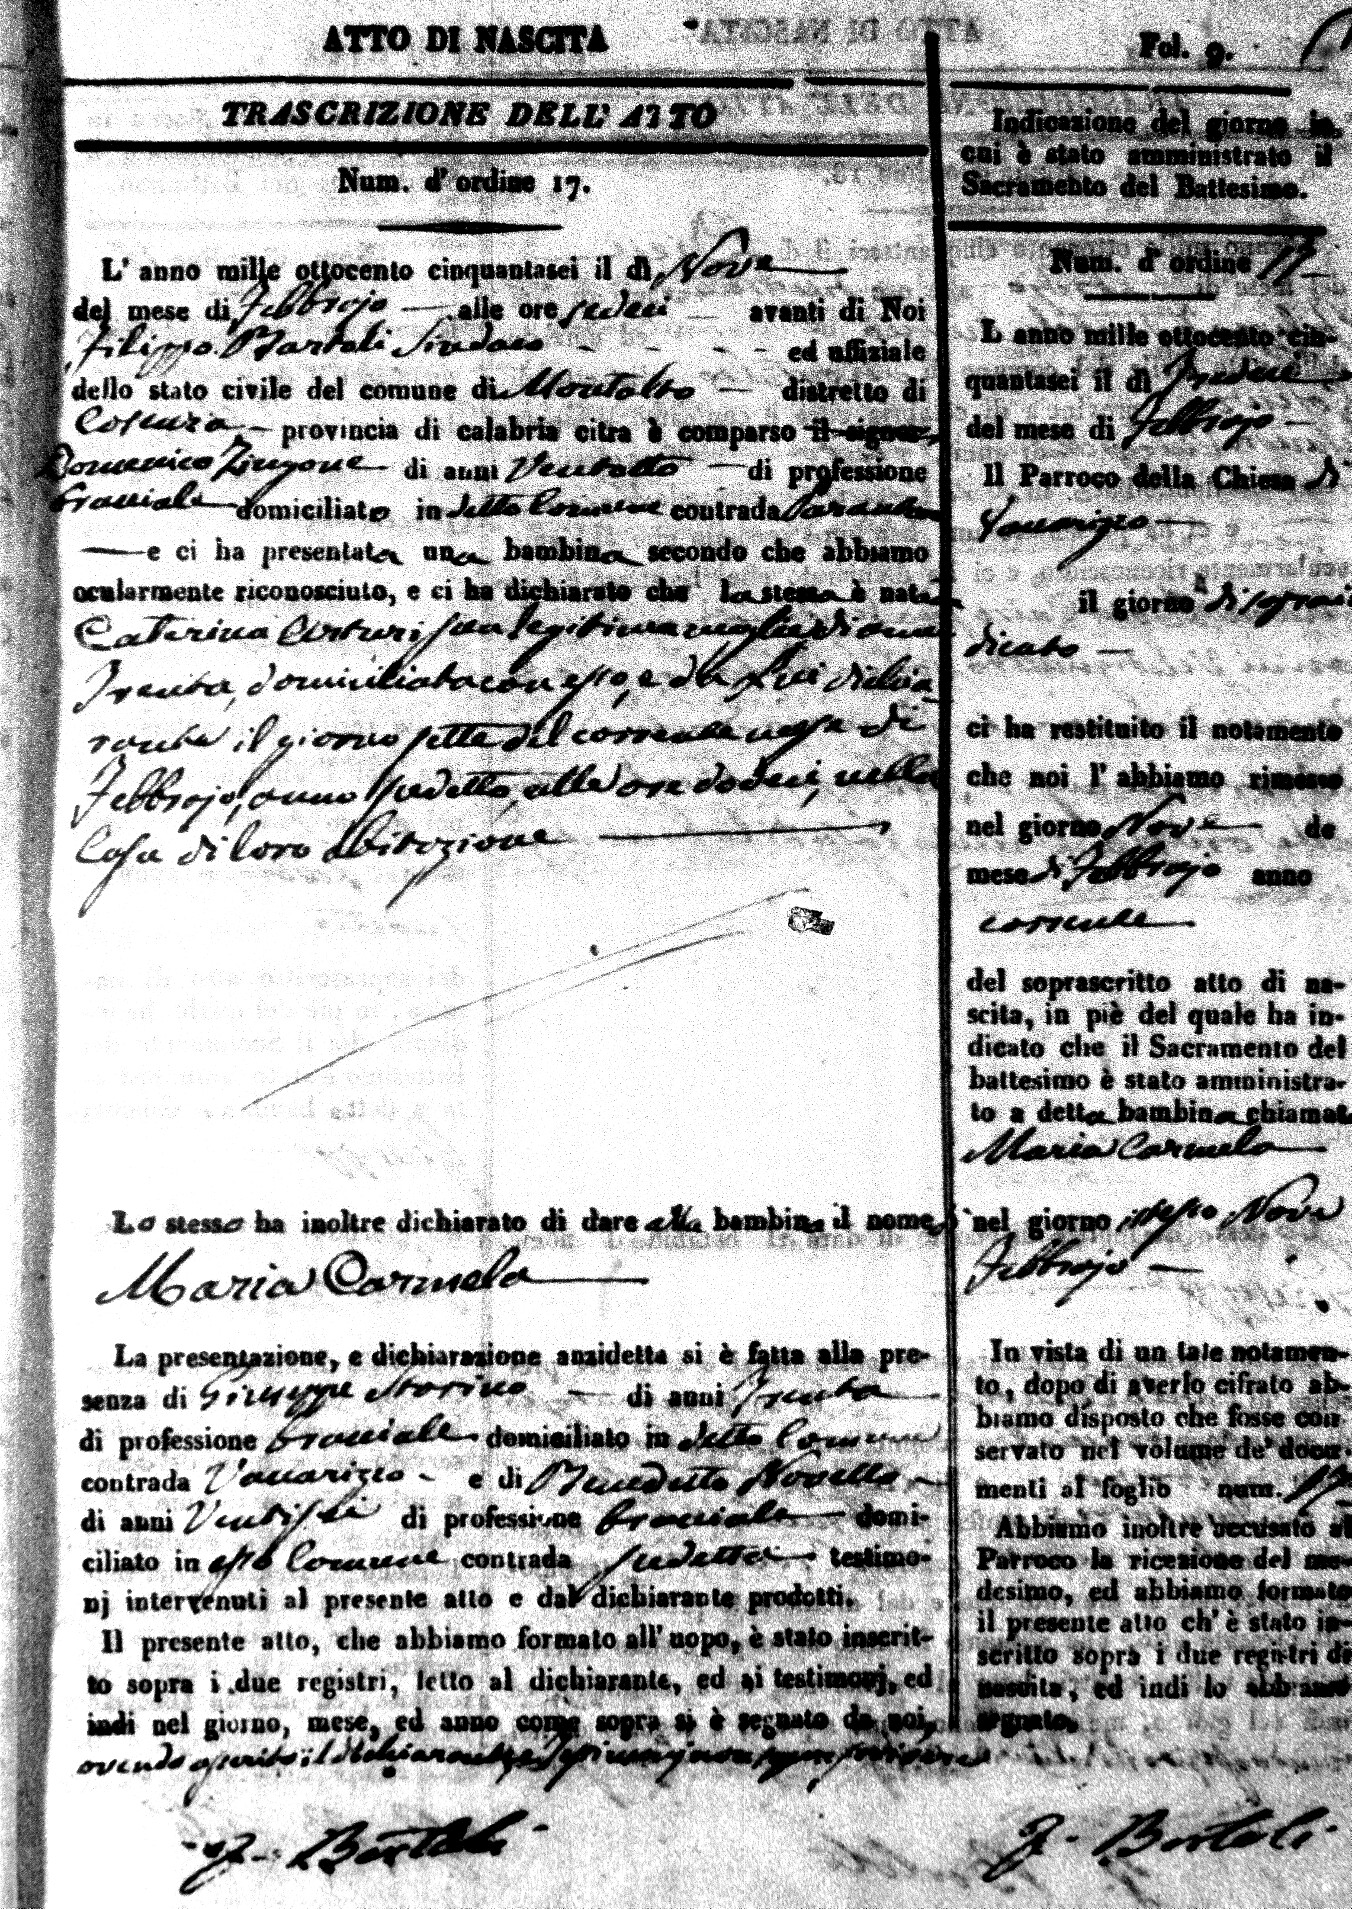 ATTO DI NASCITA
Fol. 9.
TRASCRIZIONE DELL' ATTO
Num. d' ordine 17.
L' anno mille ottocento cinquantasei il dì Nove
del mese di Febbrajo alle ore sedeci avanti di Noi
Filippo Bartoli Sindaco ed uffiziale
dello stato civile del comune di Montalto distretto di
Cosenza provincia di calabria citra è comparso il signor
Domenico Zingone di anni Ventotto di professione
bracciale domiciliato in detto Comune contrada
e ci ha presentata una bambina secondo che abbiamo
ocularmente riconosciuto, e ci ha dichiarato che la stessa è nata da
Caterina sua legitima moglie di anni
Trenta, domiciliata con esso, e da lui dichia-
rante il giorno sette del corrente mese di
Febbrajo, anno sudetto, alle ore dodeci, nella
Casa di loro abitazione
Lo stesso ha inoltre dichiarato di dare alla bambina il nome
Maria Carmela
La presentazione, e dichiarazione anzidetta si è fatta alla pre-
senza di Giuseppe Storino di anni Trenta
di professione bracciale domiciliato in detto Comune
contrada Vaccarizzo e di Benedetto Novello
di anni Ventisei di professione bracciale domi-
ciliato in esso Comune contrada sudetta testimo-
nj intervenuti al presente atto e dal dichiarante prodotti.
Il presente atto, che abbiamo formato all' uopo, è stato inscrit-
to sopra i due registri, letto al dichiarante, ed ai testimonj, ed
indi nel giorno, mese, ed anno come sopra si è segnato da noi,
avendo asserito il dichiarante, e Testimonj non saper scrivere
F. Bartoli
Indicazione del giorno in
cui è stato amministrato il
Sacramento del Battesimo.
Num. d' ordine 17
L anno mille ottocento cin-
quantasei il dì Tredeci
del mese di Febbrajo
Il Parroco della Chiesa di
Vaccarizzo
il giorno di sopra in
dicato
ci ha restituito il notamento
che noi l' abbiamo rimesso
nel giorno Nove de
mese di Febbrajo anno
corrente
del soprascritto atto di na-
scita, in piè del quale ha in-
dicato che il Sacramento del
battesimo è stato amministra-
to a detta bambina chiamat
Maria Carmela
nel giorno istesso Nove
Febbrajo
In vista di un tale notamen-
to, dopo di averlo cifrato ab-
biamo disposto che fosse con
servato nel volume de' docu-
menti al foglio num. 17
Abbiamo inoltre accusato al
Parroco la ricezione del me-
desimo, ed abbiamo formato
il presente atto ch' è stato in-
scritto sopra i due registri di
nascita, ed indi lo abbiamo
segnato.
F. Bartoli